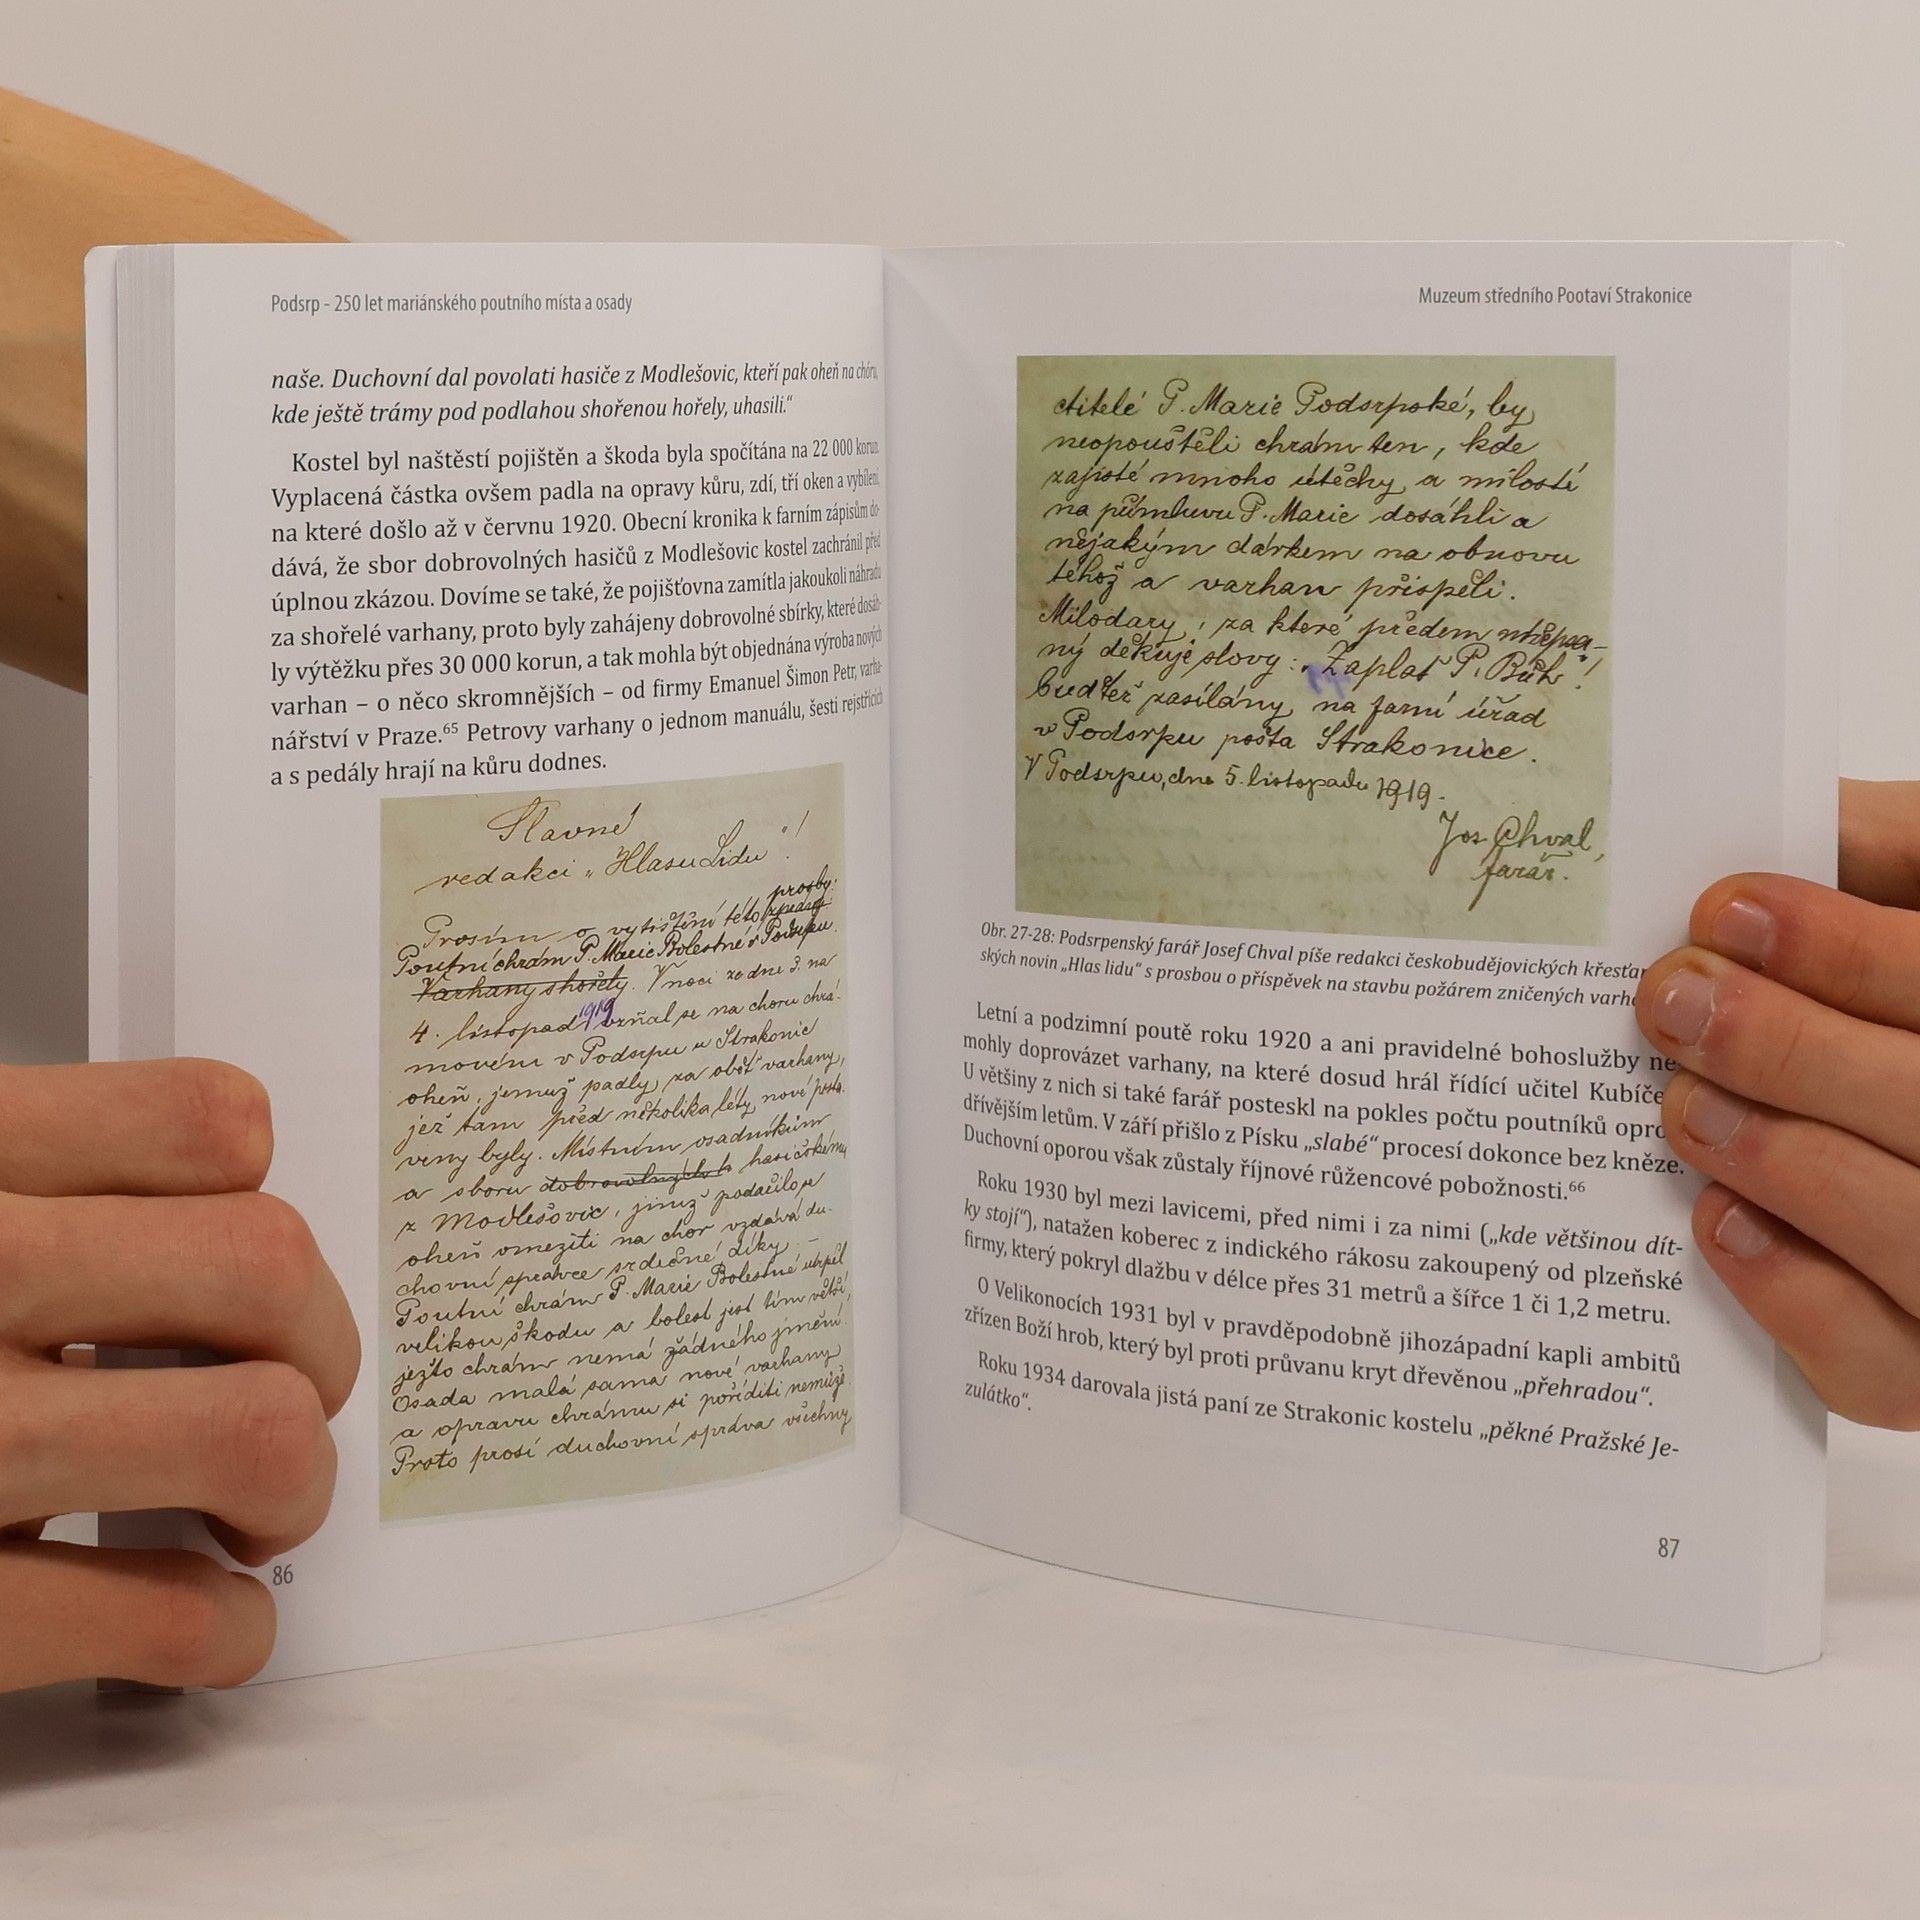 Podsrp - 250 let mariánského poutního místa a osady
naše. Duchovní dal povolati hasiče z Modlešovic, kteří pak oheň na chóru,
kde ještě trámy pod podlahou shořenou hořely, uhasili.“
Kostel byl naštěstí pojištěn a škoda byla spočítána na 22 000 korun.
Vyplacená částka ovšem padla na opravy kůru, zdí, tří oken a vybílení,
na které došlo až v červnu 1920. Obecní kronika k farním zápisům do-
dává, že sbor dobrovolných hasičů z Modlešovic kostel zachránil před
úplnou zkázou. Dovíme se také, že pojišťovna zamítla jakoukoli náhradu
za shořelé varhany, proto byly zahájeny dobrovolné sbírky, které dosáh-
ly výtěžku přes 30 000 korun, a tak mohla být objednána výroba nových
varhan – o něco skromnějších – od firmy Emanuel Šimon Petr, varha-
nářství v Praze.65 Petrovy varhany o jednom manuálu, šesti rejstřících
a s pedály hrají na kůru dodnes.
Slavné
redakci „Hlasu Lidu“!
prosby:
Prosím o vytištění této
Poutní chrám P. Marie Bolestné v Podsrpu.
Varhany shořely. V noci ze dne 3. na
4. listopad 1919 vzňal se na choru chrá-
movém v Podsrpu u Strakonic
oheň, jemuž padly za oběť varhany,
jež tam před několika léty nově posta-
veny byly. Místním osadníkům
a sboru dobrovolných hasičskému
z Modlešovic, jimž podařilo se
oheň omeziti na chor vzdává du-
chovní správce srdečné díky. –
Poutní chrám P. Marie Bolestné utrpěl
velikou škodu a bolest jest tím větší,
ježto chrám nemá žádného jmění.
Osada malá sama nové varhany
a opravu chrámu si poříditi nemůže.
Proto prosí duchovní správa všechny
86
Muzeum středního Pootaví Strakonice
ctitelé P. Marie Podsrpské, by
neopouštěli chrám ten, kde
zajisté mnoho útěchy a milostí
na přímluvu P. Marie dosáhli a
nějakým dárkem na obnovu
téhož a varhan přispěli.
Milodary, za které předem
ný děkuje slovy: „Zaplať P. Bůh!
buďtež zasílány na farní úřad
v Podsrpu pošta Strakonice.
V Podsrpu, dne 5. listopadu 1919.
Jos. Chval,
farář.
Obr. 27-28: Podsrpenský farář Josef Chval píše redakci českobudějovických křesťan
ských novin „Hlas lidu“ s prosbou o příspěvek na stavbu požárem zničených varha
Letní a podzimní poutě roku 1920 a ani pravidelné bohoslužby ne-
mohly doprovázet varhany, na které dosud hrál řídící učitel Kubíče
U většiny z nich si také farář posteskl na pokles počtu poutníků opro
dřívějším letům. V září přišlo z Písku „slabé“ procesí dokonce bez kněze.
Duchovní oporou však zůstaly říjnové růžencové pobožnosti.66
Roku 1930 byl mezi lavicemi, před nimi i za nimi („kde většinou dít-
ky stojí“), natažen koberec z indického rákosu zakoupený od plzeňské
firmy, který pokryl dlažbu v délce přes 31 metrů a šířce 1 či 1,2 metru.
O Velikonocích 1931 byl v pravděpodobně jihozápadní kapli ambitů
zřízen Boží hrob, který byl proti průvanu kryt dřevěnou „přehradou“.
Roku 1934 darovala jistá paní ze Strakonic kostelu „pěkné Pražské Je-
zulátko“.
87